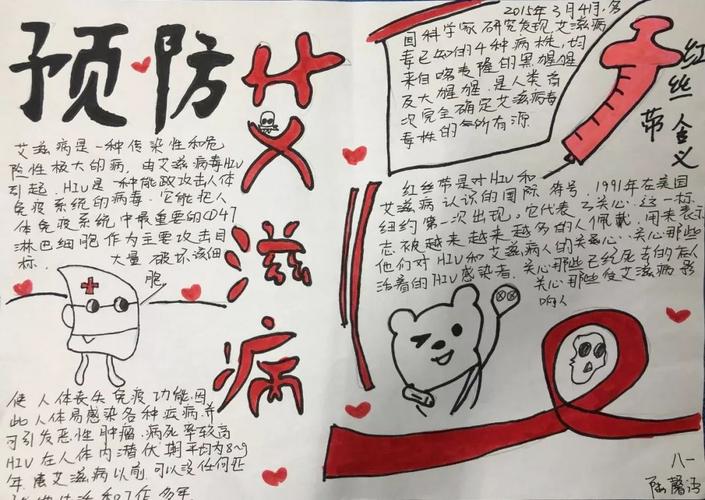 预防
艾滋病
艾滋病是一种传染性和危
险性极大的病，由艾滋病毒HIV
引起，HIV是一种能攻击人体
免疫系统的病毒。它能把人
体免疫系统中最重要的CD4T
淋巴细胞作为主要攻击目
标，大量破坏该细
胞
使人体丧失免疫功能，因
此人体易感染各种疾病，并
可引发恶性肿瘤，病死率较高
HIV在人体内潜伏期平均为8～9
年，患艾滋病以前，可以没任何
生活和工作多年。
2015年3月4日，多
国科学家研究发现，艾滋病
毒已知的4种病株，均
来自喀麦隆的黑猩猩
及大猩猩，是人类首
次完全确定艾滋病毒
毒株的所有源
红丝带含义
红丝带是对HIV和
艾滋病认识的国际符号，1991年在美国
纽约第一次出现，它代表了关心，这一标
志被越来越多的人佩戴，用来表示
他们对HIV和艾滋病人的关心、关心那些
活着的HIV感染者，关心那些已经死去的病人
关心那些受艾滋病影
响人
八一